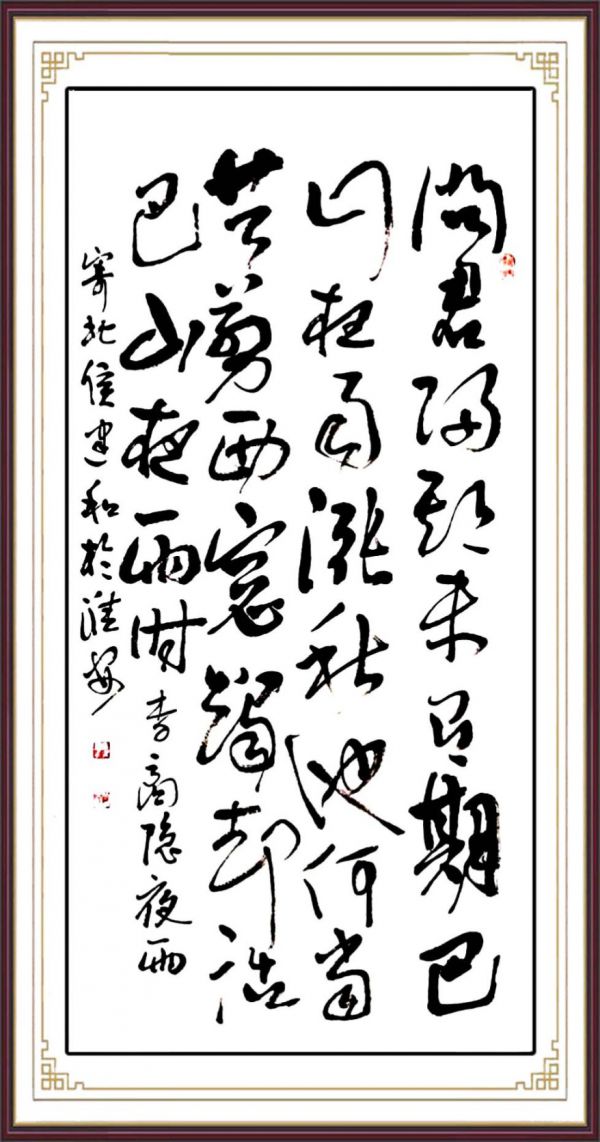 問君归期未有期巴
山夜雨涨秋池何當
共剪西窗燭却话
巴山夜雨时李商隐夜雨
寄北侯建和於淮安